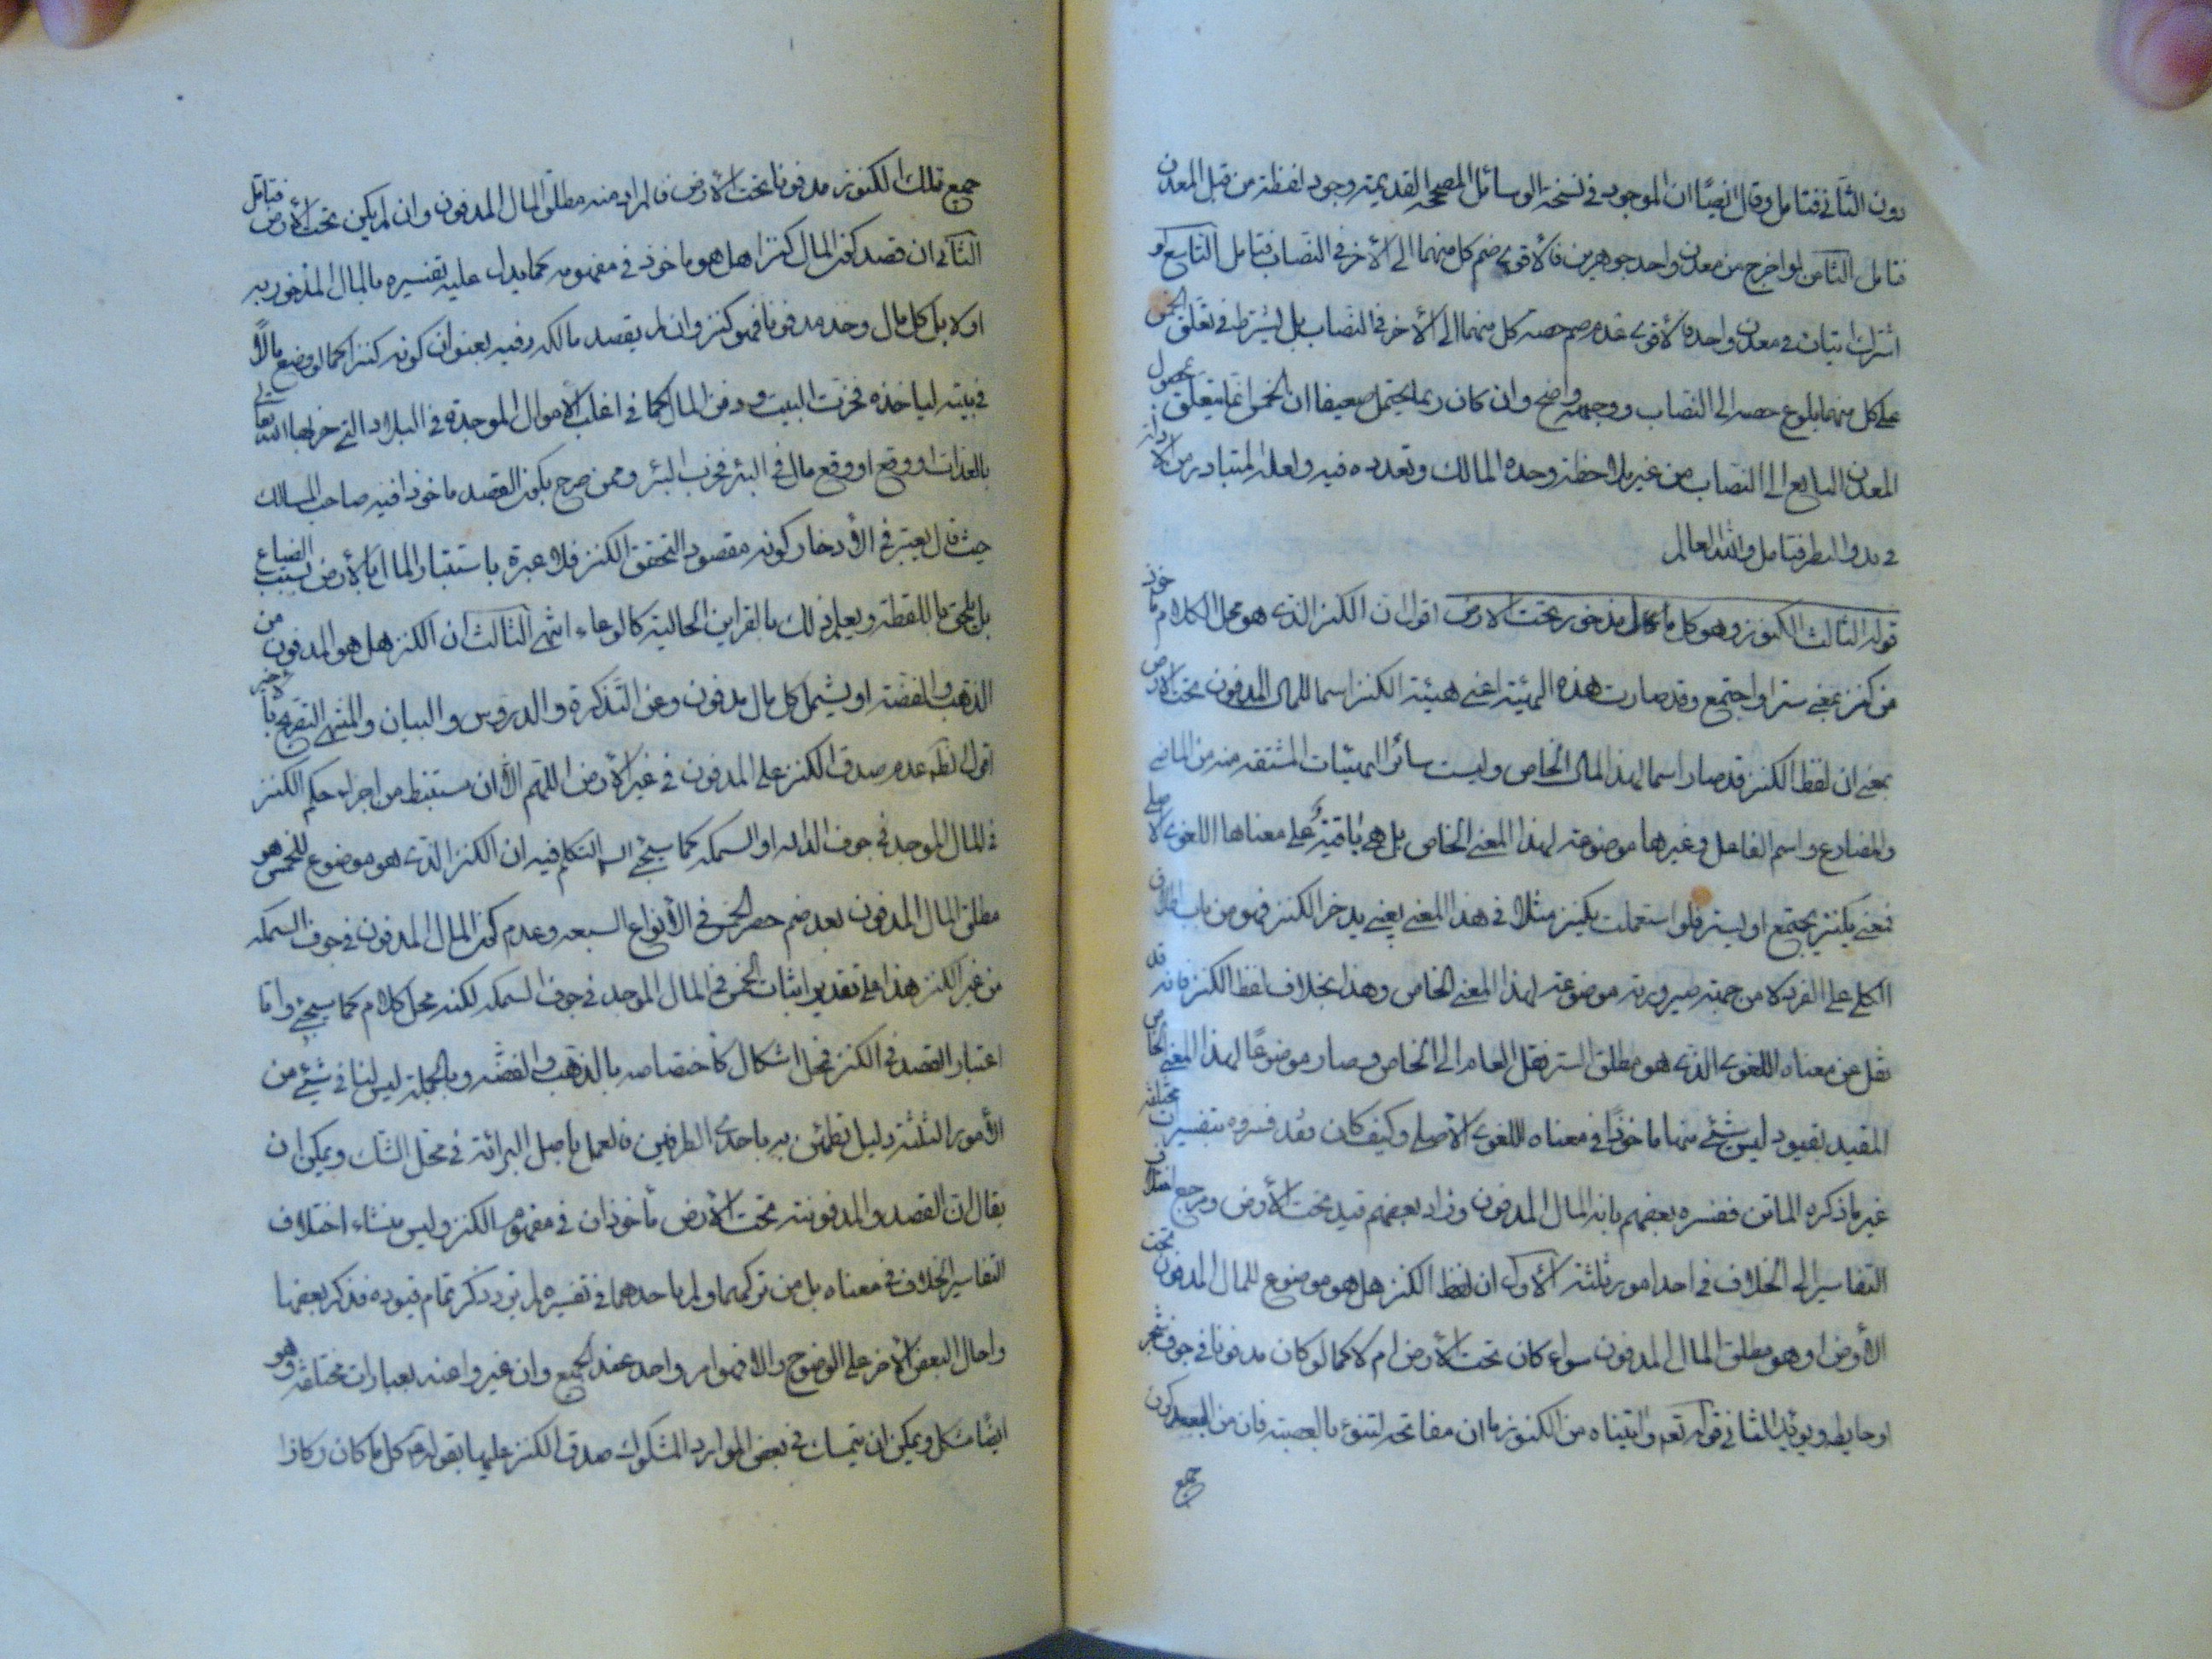 دون الثانى فتامل وقال ايضًا ان الموجود فى نسخة الوسائل المصححة القديمة وجود لفظة من قبل المعدن
فتامل الثامن لو اخرج من معدن واحد جوهرين فالأقوى ضم كل منهما الى الأخر فى النصاب فتامل التاسع لو
اشترك اثنان فى معدن واحد فالأقوى عدم ضم حصة كل منهما الى الأخر فى النصاب بل يشترط فى تعلق الخمس
على كل منهما بلوغ حصته الى النصاب ووجهه واضح وان كان ربما يحتمل ضعيفا ان الخمس انما يتعلق
المعدن البالغ الى النصاب من غير ملاحظة وحدة المالك وتعدده فيه ولعله المتبادر من الادلة
فى بدو النظر فتامل والله العالم
قوله الثالث الكنوز وهو كل مال مذخور تحت الارض اقول ان الكنز الذى هو محل الكلام ماخوذ
من كنز بمعنى ستر او اجتمع وقد صارت هذه الهيئة اعنى هيئة الكنز اسما للمال المدفون تحت الارض
بمعنى ان لفظ الكنز قد صار اسما لهذا المال الخاص وليست سائر الهيئات المشتقه منه من الماضى
والمضارع واسم الفاعل وغيرها موضوعة لهذا المعنى الخاص بل هى باقية على معناها اللغوى الاصلى
فمعنى يكنز يجتمع او يستر فلو استعملت يكنز مثلا فى هذا المعنى يعنى يدخر الكنز فهو من باب اطلاق
الكلى على الفرد لا من جهة صيرورته موضوعة لهذا المعنى الخاص وهذا بخلاف لفظ الكنز فانه قد
نقل عن معناه اللغوى الذى هو مطلق الستر نقل العام الى الخاص وصار موضوعًا لهذا المعنى الخاص
المقيد بقيود ليس شىء منها ماخوذًا فى معناه اللغوى الاصلى وكيف كان فقد فسروه بتفسيرات مختلفة
غير ما ذكره الماتن ففسره بعضهم بانه المال المدفون وزاد بعضهم قيد تحت الأرض ومرجع اختلاف
التفاسير الى الخلاف فى احد امور ثلثة الأول ان لفظ الكنز هل هو موضوع للمال المدفون تحت
الأرض او هو مطلق المال المدفون سواء كان تحت الأرض ام لا كما لو كان مدفونا فى جوف شجر
او حايط ويؤيد الثانى قوله تعم واتيناه من الكنوز ما ان مفاتحه لتنوء بالعصبة فان من البعيد كون
جمع
جميع تلك الكنوز مدفونا تحت الأرض فالمراد منه مطلق المال المدفون وان لم يكن تحت الأرض فتامل
الثانى ان قصد كون المال كنزا هل هو ماخوذ فى مفهومه كما يدل عليه تفسيره بالمال المذخور به
او لا بل كل مال وجد مدفونا فهو كنز وان لم يقصد مالكه دفنه بعنوان كونه كنزا كما لو وضع مالًا
فى بيته لياخذه فخربت البيت ودفن المال كما فى اغلب الأموال الموجدة فى البلاد التى خربها الله تعالى
بالعذاب او وقع او وقع مال فى البئر فخرب البئر وممن صرح بكون القصد ماخوذا فيه صاحب المسالك
حيث قال يعتبر فى الأدخار كونه مقصودا لتحقق الكنز فلا عبرة باستتار المال بالأرض بسبب الضياع
بل يلحق باللقطة ويعلم ذلك بالقراين الحالية كالوعاء انتهى الثالث ان الكنز هل هو المدفون من
الذهب والفضة او يشمل كل مال مدفون وعن التذكرة والدروس والبيان والمنتهى التصريح بالأخير
اقول الظم عدم صدق الكنز على المدفون فى غير الأرض اللهم الأ ان يستنبط من اجراء حكم الكنز
فى المال الموجد فى جوف الدابه او السمكه كما سيجىء التكلم فيه ان الكنز الذى هو موضوع للخمس هو
مطلق المال المدفون بعد ضم حصر الخمس فى الأنواع السبعه وعدم كون المال المدفون فى جوف السمكه
من غير الكنز هذا على تقدير اثبات الخمس فى المال الموجد فى جوف السمكه لكنه محل كلام كما سيجىء واما
اعتبار القصد فى الكنز فمحل اشكال كاختصاصه بالذهب والفضه وبالجملة ليس لنا فى شىء من
الأمور الثلثة دليل نطمئن به باحدى الطرفين فالعمل باصل البرائة فى محل الشك ويمكن ان
يقال ان القصد والمدفونية تحت الأرض مأخوذان فى مفهوم الكنز وليس منشاء اختلاف
التفاسير الخلاف فى معناه بل من تركهما او احدهما فى تفسيره لم يرد ذكر تمام قيوده فذكر بعضها
واحال البعض الأخر على الوضوح والا فهو امر واحد عند الجميع وان عبروا عنه بعبارات مختلفة وهو
ايضًا مشكل ويمكن ان يتمسك فى بعض الموارد المشكوك صدق الكنز عليها بقوله كل ما كان ركازا